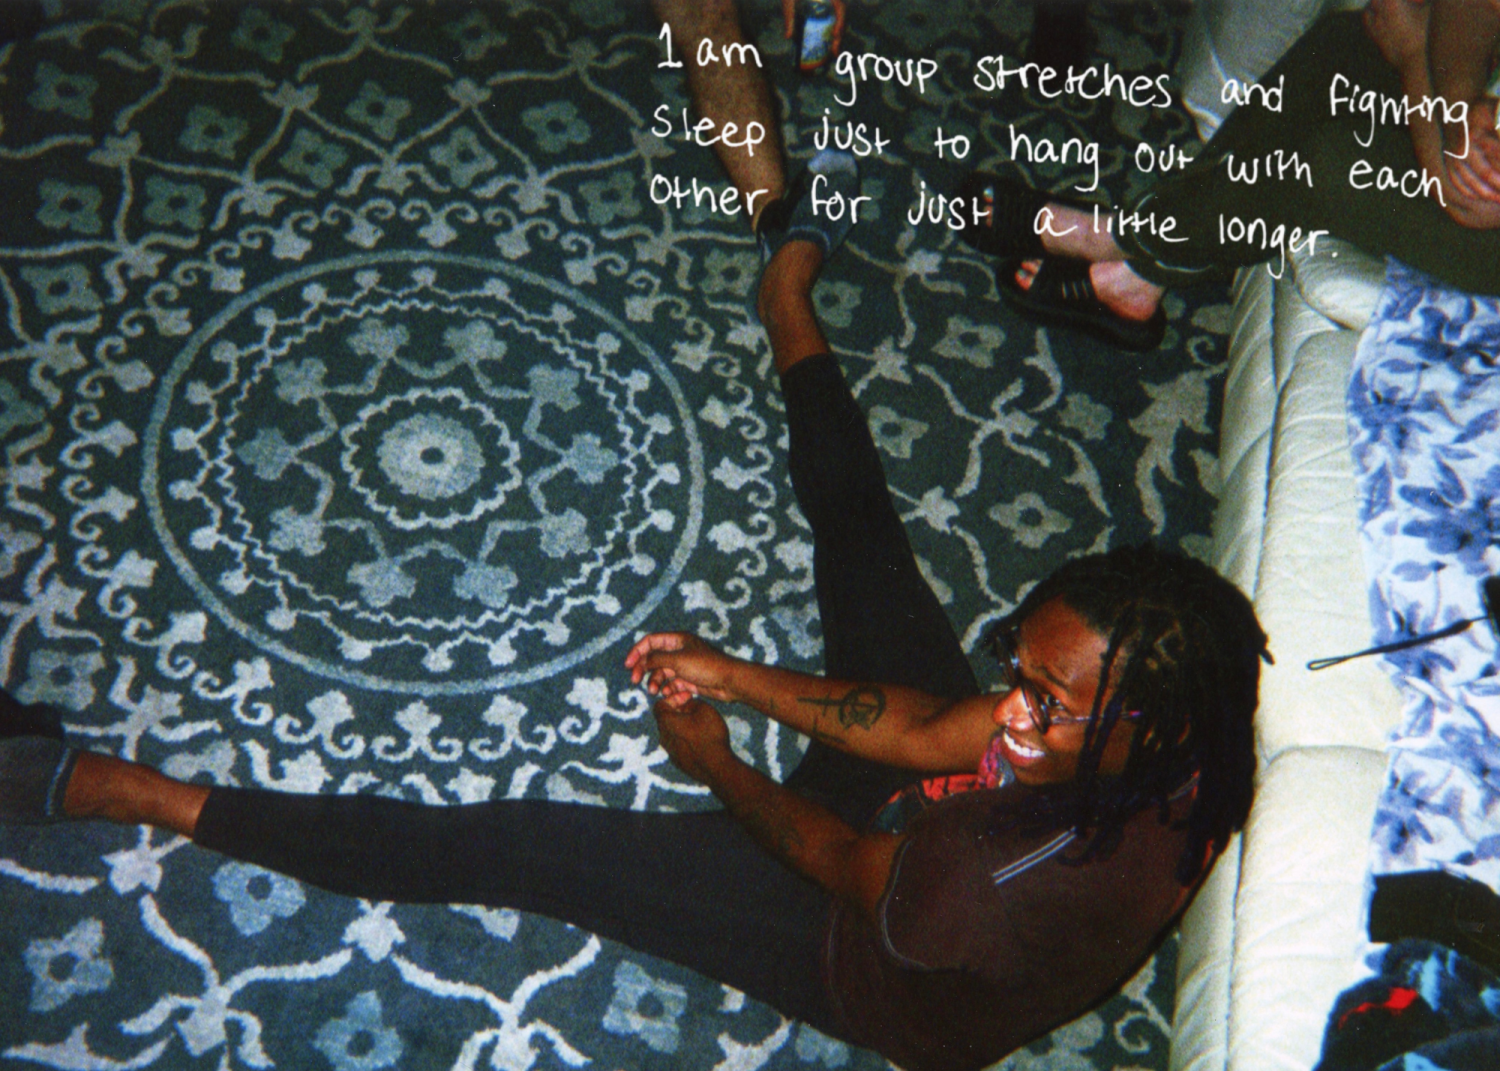 I am group stretches and fighting
sleep just to hang out with each
other for just a little longer.